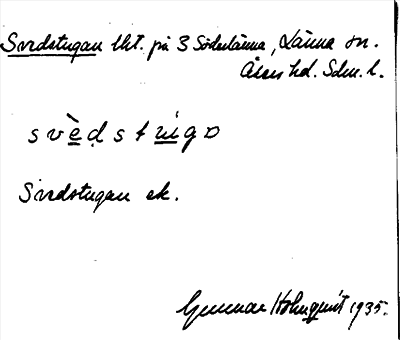 Svedstugan lht. på 3 Söderlänna, Länna sn.
Åkers hd. Sdm. l.
svè̲ḍstu̲go
Svedstugan ek.
Gunnar Holmquist 1935.